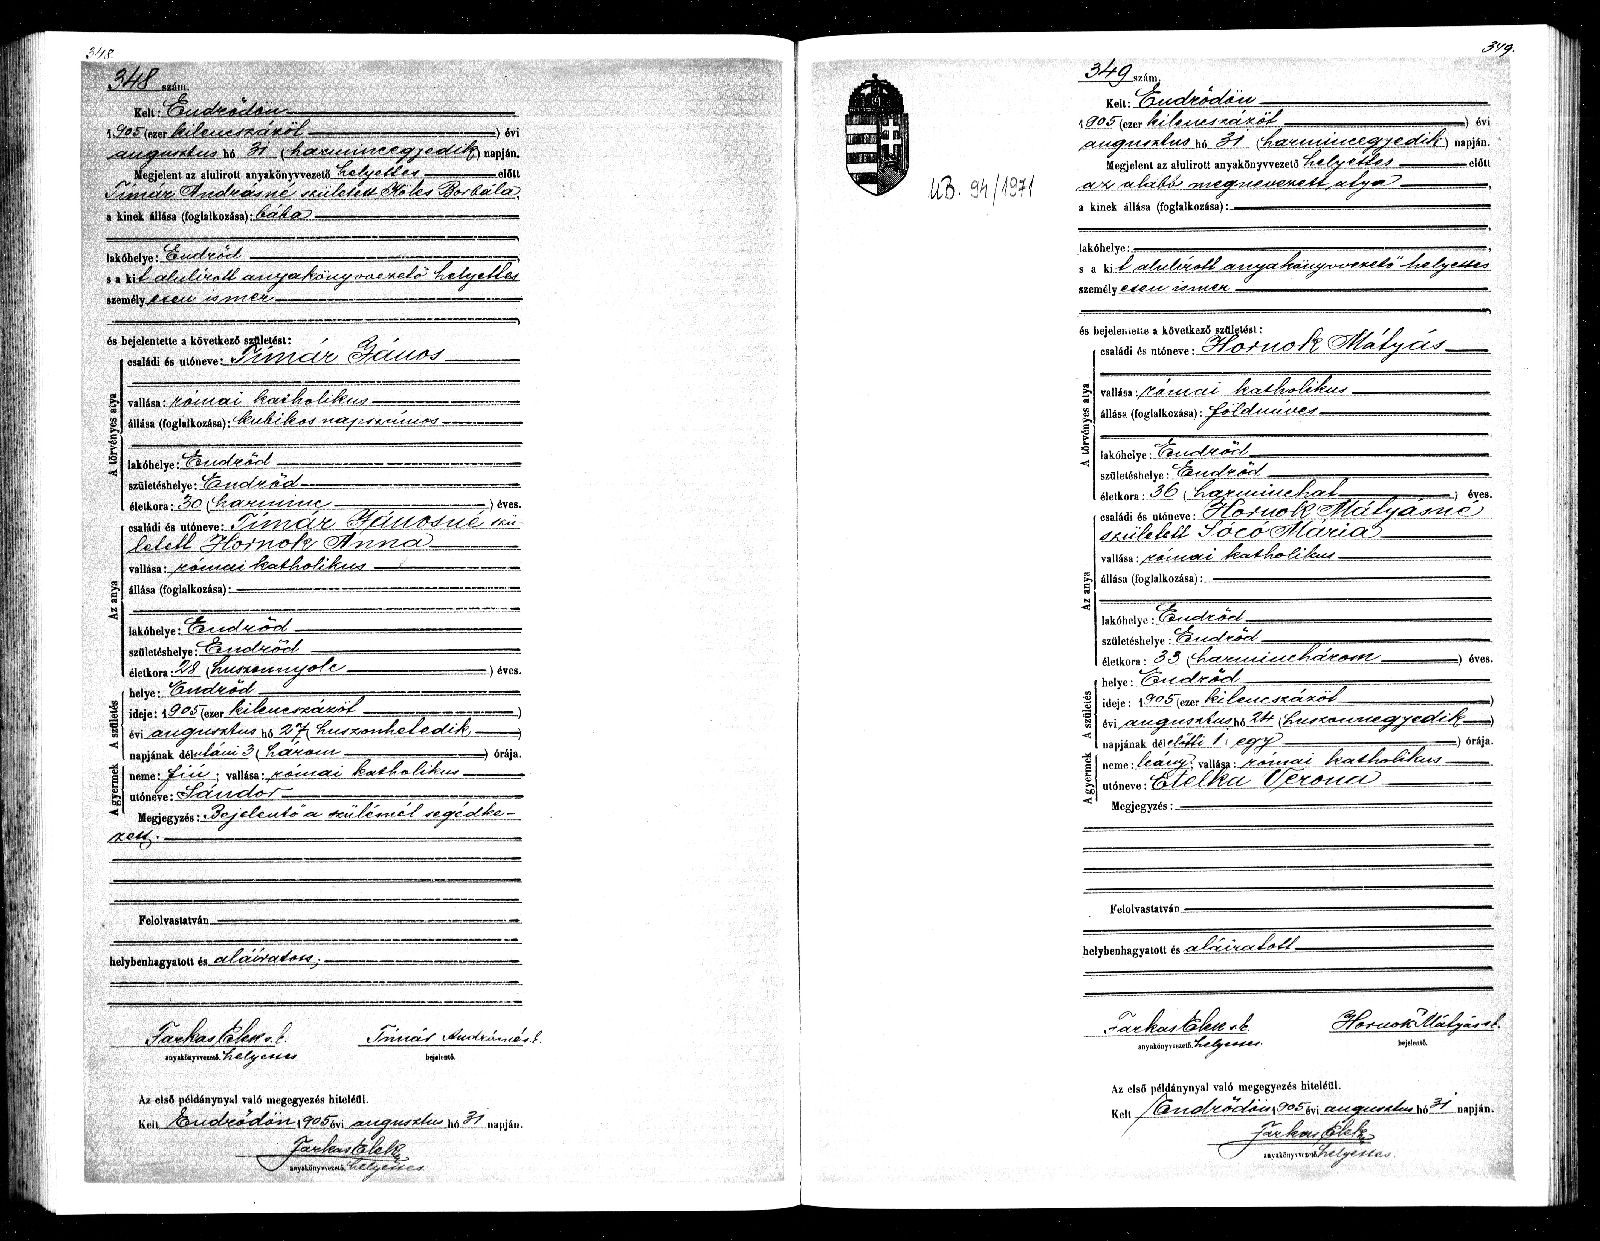 348
348 szám.
Kelt: Endrődön
1905 (ezer kilencszázöt ) évi
augusztus hó 31 (harmincegyedik) napján.
Megjelent az alulirott anyakönyvvezető helyettes előtt
Tímár Andrásné született Kóles Borbála,
a kinek állása (foglalkozása): bába
lakóhelye: Endrőd
s a kit alulírott anyakönyvvezető helyettes
személyesen ismer
és bejelentette a következő születést:
A törvényes atya
családi és utóneve: Tímár János
vallása: római katholikus
állása (foglalkozása): kubikos napszámos
lakóhelye: Endrőd
születéshelye: Endrőd
életkora: 30 (harminc ) éves.
Az anya
családi és utóneve: Tímár Jánosné szü
letett Hornok Anna
vallása: római katholikus
állása (foglalkozása):
lakóhelye: Endrőd
születéshelye: Endrőd
életkora: 28 (huszonnyolc ) éves.
A születés
helye: Endrőd
ideje: 1905 (ezer kilencszázöt )
évi augusztus hó 27 (huszonhetedik )
napjának délutáni 3 (három ) órája.
A gyermek
neme: fiú; vallása: római katholikus
utóneve: Sándor
Megjegyzés: Bejelentő a szülésnél segédke-
zett.
Felolvastatván
helybenhagyatott és aláíratott;
Farkas Elek s. k. Tímár Andrásné s. k.
anyakönyvvezető. helyettes bejelentő.
Az első példánynyal való megegyezés hiteléül.
Kelt Endrődön 1905 évi augusztus hó 31 napján.
Farkas Elek
anyakönyvvezető. helyettes
349.
UB. 94/1971
349 szám.
Kelt: Endrődön
1905 (ezer kilencszázöt ) évi
augusztus hó 31 (harmincegyedik) napján.
Megjelent az alulirott anyakönyvvezető helyettes előtt
az alább megnevezett atya,
a kinek állása (foglalkozása):
lakóhelye:
s a kit alulírott anyakönyvvezető helyettes
személyesen ismer
és bejelentette a következő születést:
A törvényes atya
családi és utóneve: Hornok Mátyás
vallása: római katholikus
állása (foglalkozása): földmíves
lakóhelye: Endrőd
születéshelye: Endrőd
életkora: 36 (harminchat ) éves.
Az anya
családi és utóneve: Hornok Mátyásné
született Sócó Mária
vallása: római katholikus
állása (foglalkozása):
lakóhelye: Endrőd
születéshelye: Endrőd
életkora: 33 (harminchárom ) éves.
A születés
helye: Endrőd
ideje: 1905 (ezer kilencszázöt )
évi augusztus hó 24 (huszonnegyedik )
napjának délelőtti 1 (egy ) órája.
A gyermek
neme: leány; vallása: római katholikus
utóneve: Etelka Verona
Megjegyzés:
Felolvastatván
helybenhagyatott és aláíratott
Farkas Elek s. k. Hornok Mátyás s. k.
anyakönyvvezető. helyettes. bejelentő.
Az első példánynyal való megegyezés hiteléül.
Kelt Endrődön 1905 évi augusztus hó 31 napján.
Farkas Elek
anyakönyvvezető. helyettes.